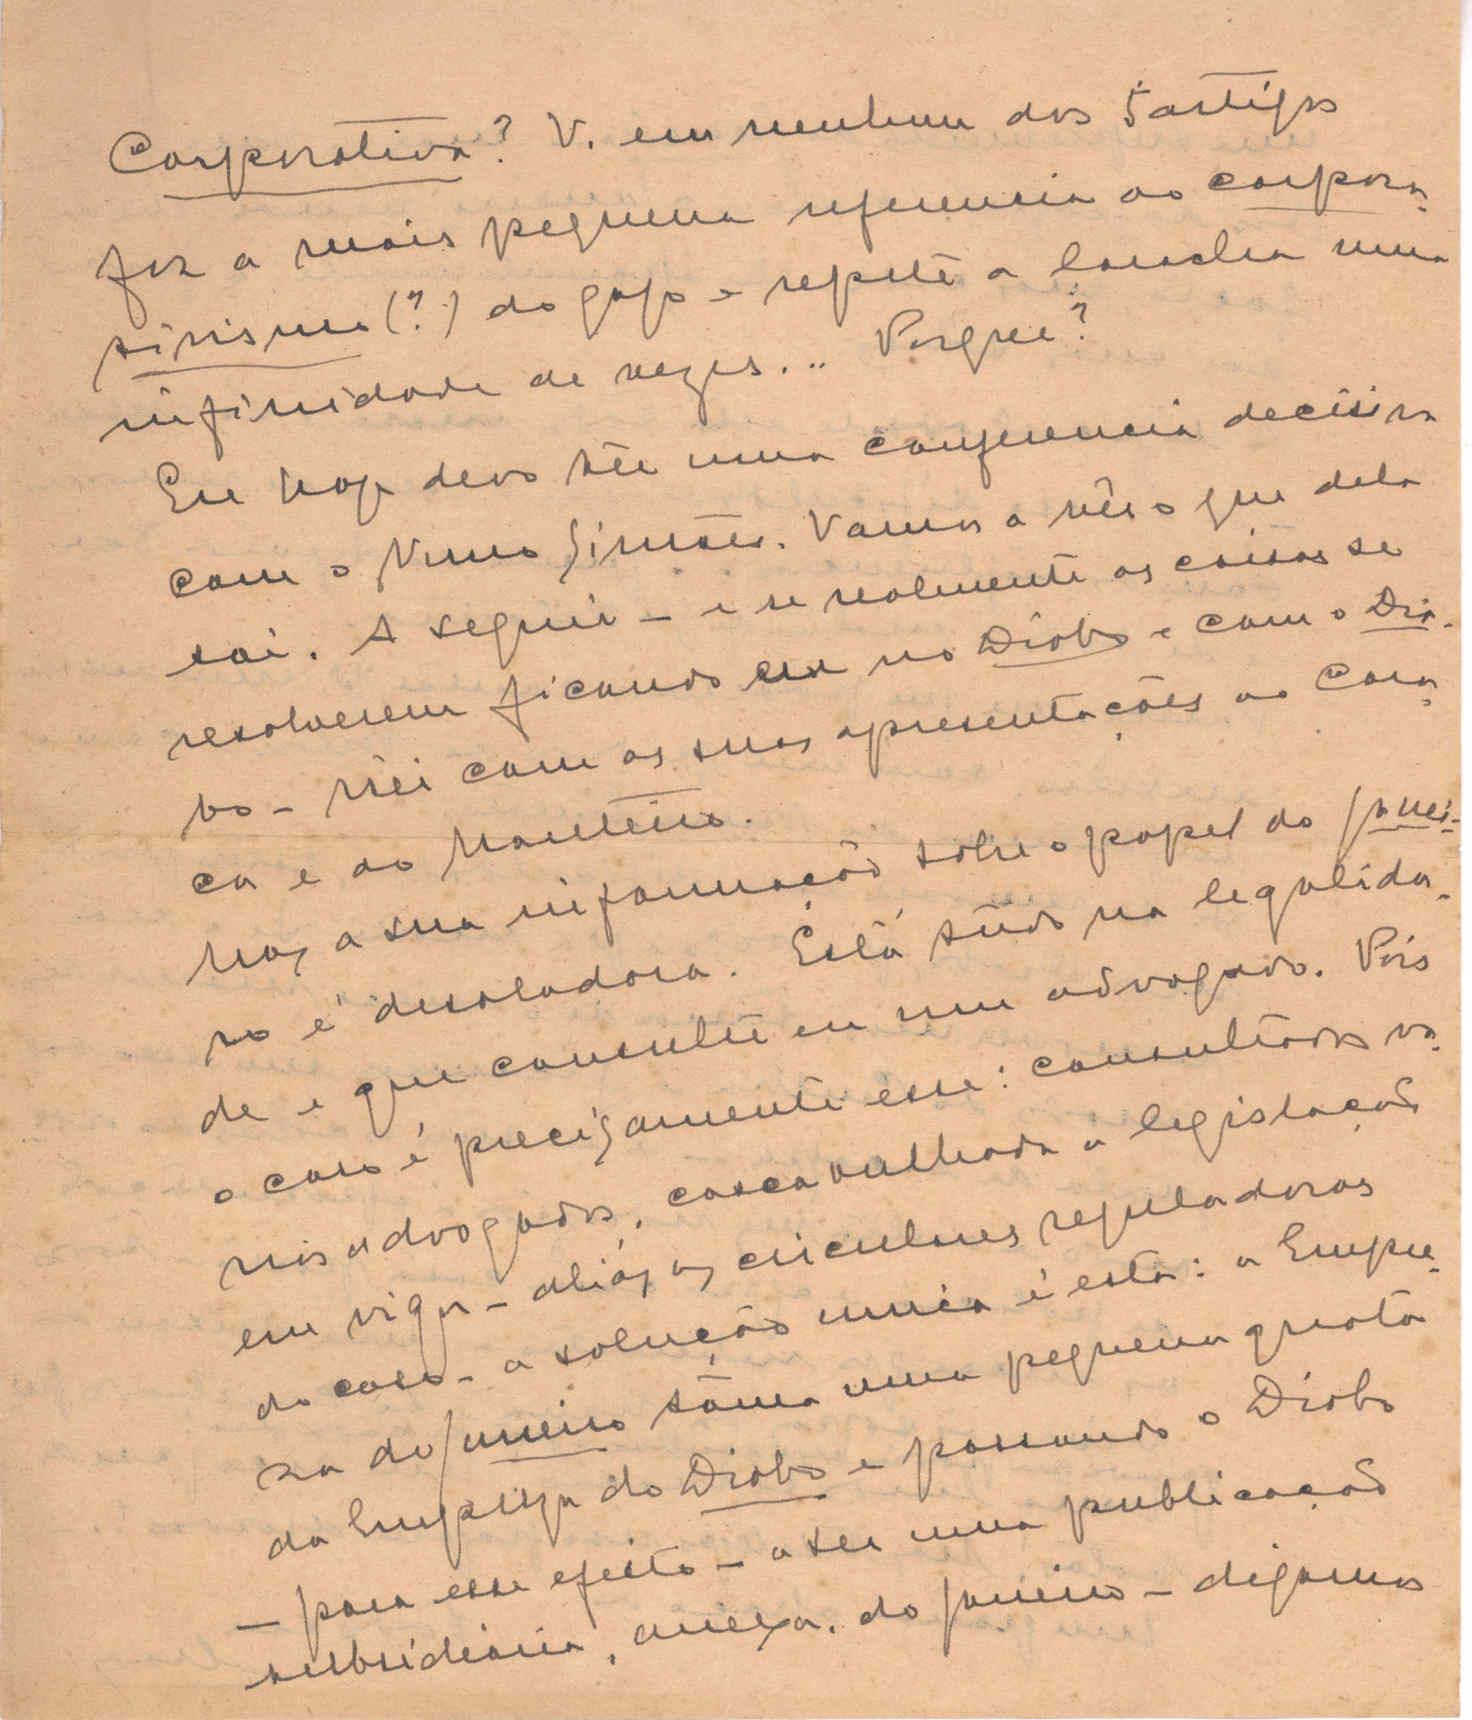 Corporativa? V. em nenhum dos 5 artigos
fez a mais pequena referencia ao corpora-
tivismo (?) do gajo e repete a laracha uma
infinidade de vezes... Porque?
Eu hoje devo têr uma conferencia decisiva
com o Nuno Simões. Vamos a vêr o que dela
sai. A seguir - e se realmente as coisas se
resolverem ficando eu no Diabo e com o Dia-
bo - irei com as suas apresentações ao Cara-
ça e ao Monteiro.
Mas a sua informação sobre o papel do Janei-
ro é desoladora. Está tudo na legalida-
de e que consulte eu um advogado. Pois
o caso é precisamente esse: consultados va-
rios advogados, cascavulhada a legislação
em vigor - aliás as circulares reguladoras
do caso - a solução unica é esta: a Empre-
za do Janeiro tôma uma pequena quota
da Empreza do Diabo e passando o Diabo
- para esse efeito - a ser uma publicação
subsidiaria, anexa, do Janeiro - digamos